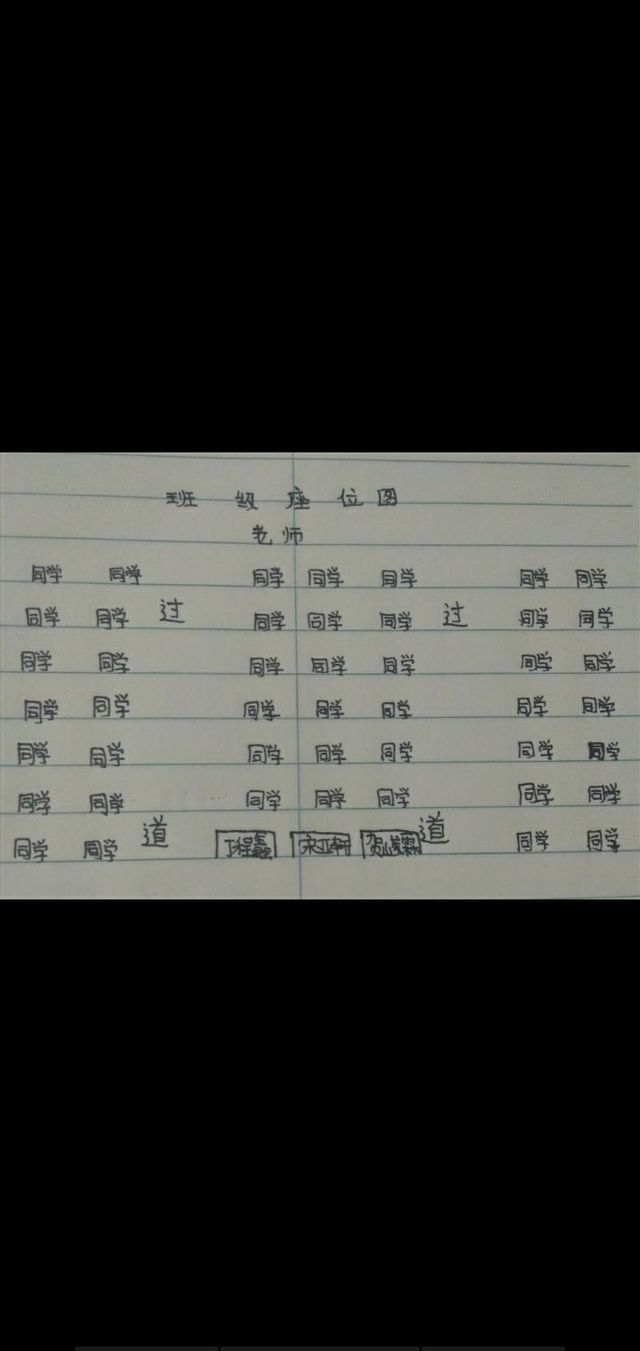 班级座位图
老师
同学 同学 同学 同学 同学 同学 同学
同学 同学 过 同学 同学 同学 过 同学 同学
同学 同学 同学 同学 同学 同学 同学
同学 同学 同学 同学 同学 同学 同学
同学 同学 同学 同学 同学 同学 同学
同学 同学 同学 同学 同学 同学 同学
同学 同学 道 丁程鑫 宋亚轩 贺峻霖 道 同学 同学